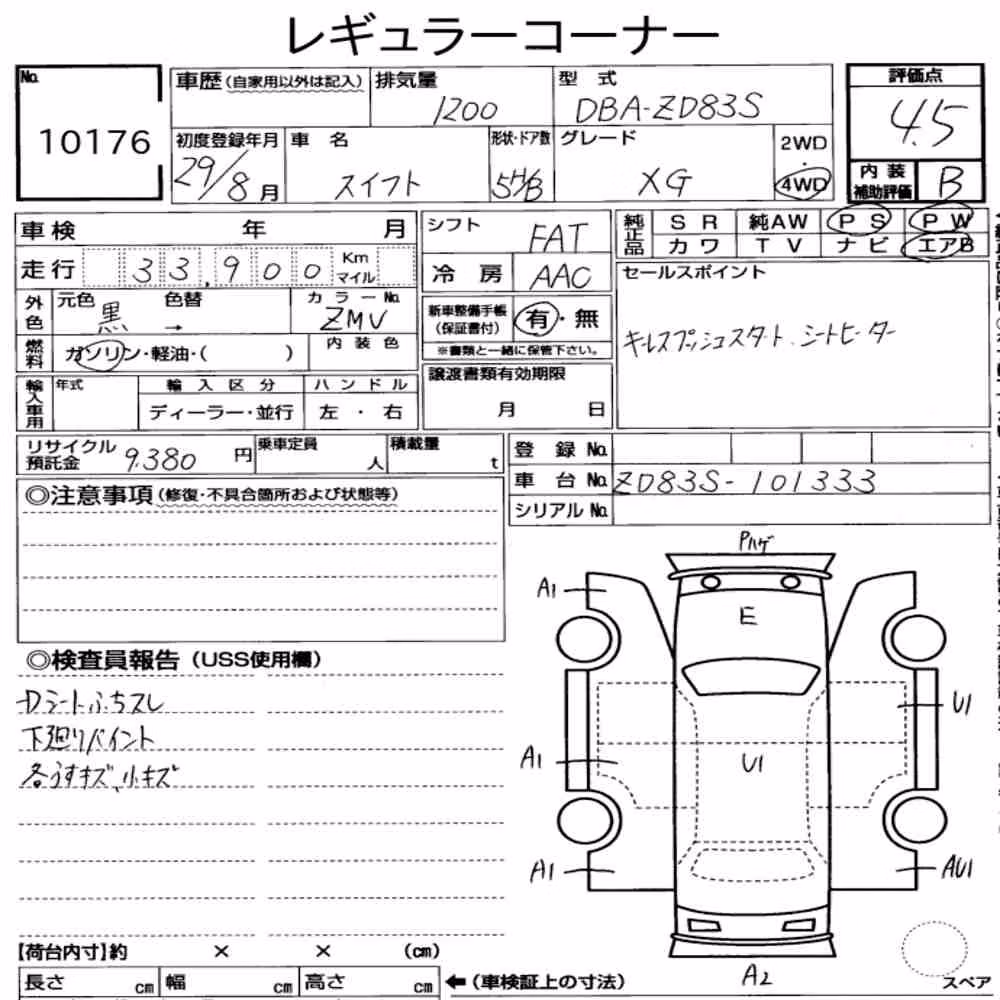 レギュラーコーナー
No. 10176
車歴(自家用以外は記入) 排気量 1200 型式 DBA-ZD83S
初度登録年月 29/8月 車名 スイフト 形状・ドア数 5H/B グレード XG 2WD・4WD
評価点 4.5
内装補助評価 B
車検 年 月
走行 33,900 Km マイル
外色 元色 黒 色替 → カラーNo. ZMV
燃料 ガソリン・軽油・( ) 内装色
輸入車用 年式 輸入区分 ハンドル
ディーラー・並行 左・右
シフト FAT
冷房 AAC
新車整備手帳(保証書付) 有・無
※書類と一緒に保管下さい。
譲渡書類有効期限
月 日
純正品 SR 純AW PS PW
カワ TV ナビ エアB
セールスポイント
キーレスプッシュスタート、シートヒーター
リサイクル預託金 9,380円 乗車定員 人 積載量 t
登録No.
車台No. ZD83S-101333
シリアルNo.
◎注意事項(修復・不具合箇所および状態等)
◎検査員報告(USS使用欄)
Dシートふちスレ
下廻りペイント
各うすキズ、小キズ
Pハゲ
A1
E
U1
A1
U1
A1
AU1
A2
スペア
【荷台内寸】約 × × (cm)
長さ cm 幅 cm 高さ cm ←(車検証上の寸法)